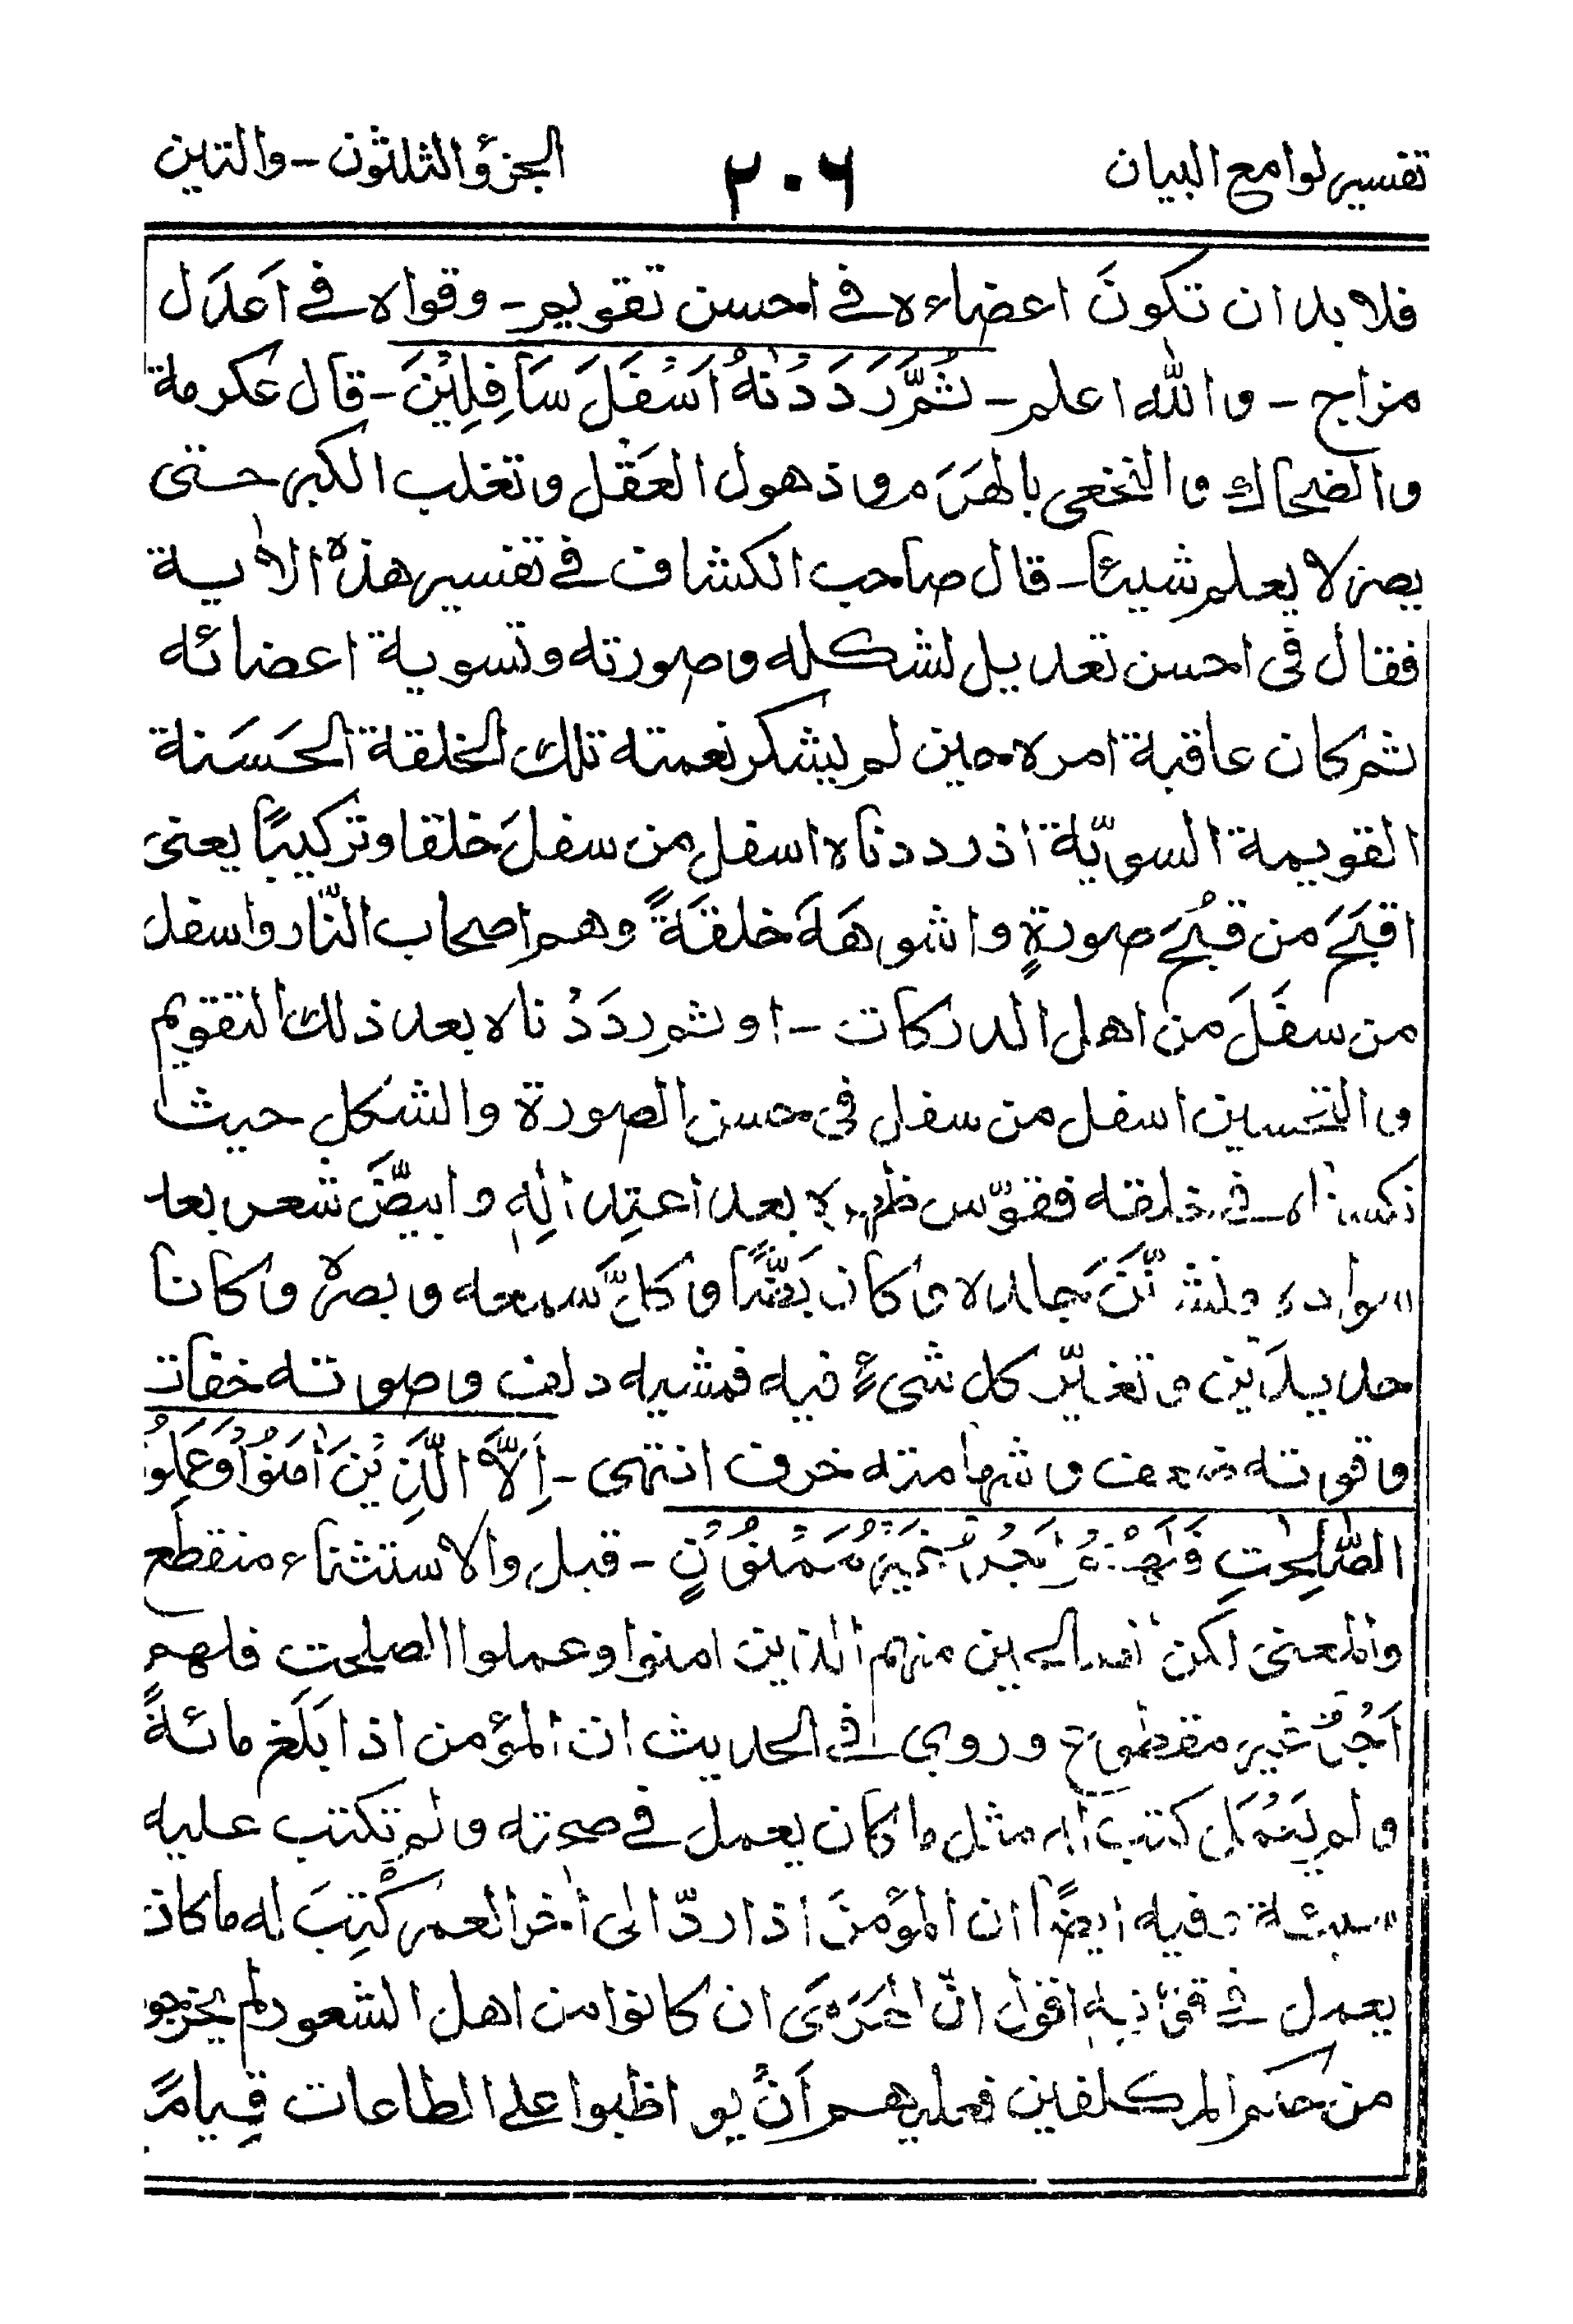 تفسير لوامع البيان
٢٠٦
الجزؤ الثلثون - والتين
فلا بد ان تكونَ اعضاءه فى احسن تقويم - وقواه فى اَعدَل
مزاج - والله اعلم - ثُمَّ رَدَدْنٰهُ اَسْفَلَ سَافِلِيْنَ - قال عكرمة
والضحاك والنخعى بالهَرَم وذهول العَقْل وتغلب الكبر حتى
يصر لا يعلم شيئا - قال صاحب الكشاف فى تفسير هذه الاٰية
فقال فى احسن تعديل لشكله وصورته وتسوية اعضائه
ثم كان عاقبة امره حين لم يشكر نعمته تلك الخلقة الحَسَنة
القويمة السويّة اذ رددناه اسفل من سفلَ خلقا وتركيبًا يعنى
اقبَحَ من قبُحَ صورةٍ واشوهَهَ خلقَةً وهم اصحاب النّار واسفل
من سفَلَ من اهل الدركات - او ثم ردَدْناه بعد ذلك التقويم
والتحسين اسفل من سفل فى حسن الصورة والشكل حيث
نكسناه فى خلقته فقوّس ظهره بعد اعتِدالِهِ وابيضَّ شعره بعد
سواده وتشنَّنَ جلده وكان بَضًّا وكلَّ سمعه وبصره وكانا
حديدَين وتغيّر كل شىءٍ فيه فمشيه دلف وصوته خفات
وقوته ضعف وشهامته خرف انتهى - اِلَّا الَّذِيْنَ اٰمَنُوْا وَعَمِلُوا
الصّٰلِحٰتِ فَلَهُمْ اَجْرٌ غَيْرُ مَمْنُوْنٍ - قيل والاستثناء منقطع
والمعنى لكن الصالحين منهم الذين امنوا وعملوا الصلحت فلهم
اَجْرٌ غير مقطوع وروى فى الحديث ان المؤمن اذا بَلَغ مائةً
ولم يَعْمَل كتب له مثل ما كان يعمل فى صحته ولم تكتب عليه
سيئة وفيه ايضًا ان المؤمنَ اذا ردّ الى اٰخر العمر كُتِبَ له ما كان
يعمل فى اقول انّ الهَرَمٰى ان كانوا من اهل الشعور لم يخرجو
من حكم المكلفين فعليهم اَنْ يواظبوا على الطاعات قِيامًا